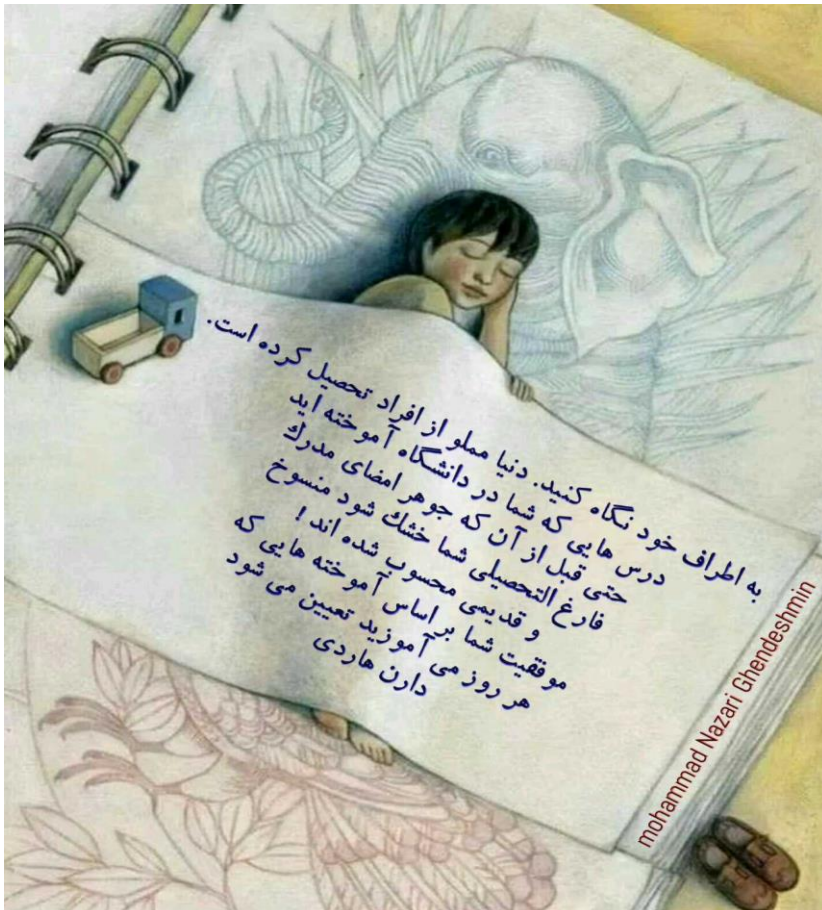 به اطراف خود نگاه کنید. دنیا مملو از افراد تحصیل کرده است.
درس هایی که شما در دانشگاه آموخته اید
حتی قبل از آن که جوهر امضای مدرك
فارغ التحصیلی شما خشك شود منسوخ
و قدیمی محسوب شده اند !
موفقیت شما بر اساس آموخته هایی که
هر روز می آموزید تعیین می شود
دارن هاردی
mohammad Nazari Ghendeshmin